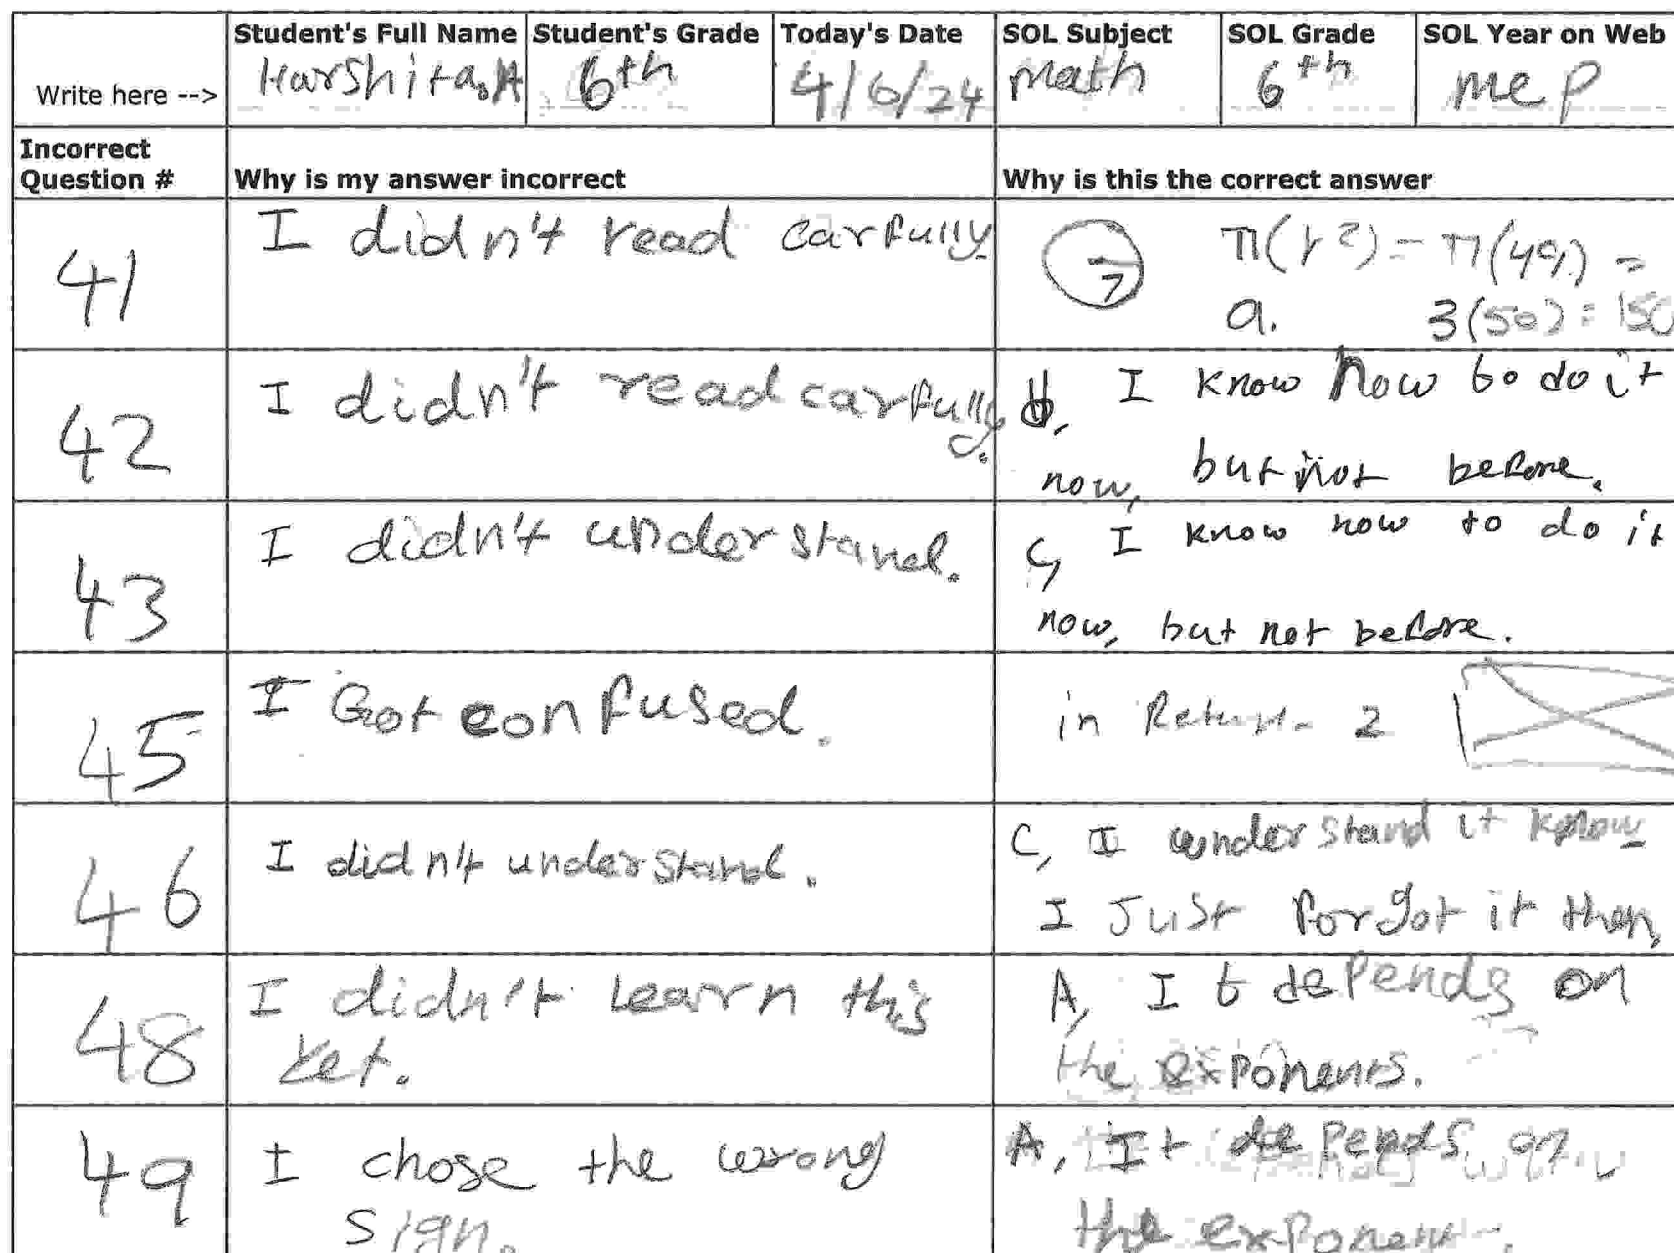 Student's Full Name Student's Grade Today's Date SOL Subject SOL Grade SOL Year on Web
Write here --> Harshita.A 6th 4/6/24 math 6th mep
Incorrect
Question # Why is my answer incorrect Why is this the correct answer
41 I didn't read carfully. 7 π(r²) = π(49) =
a. 3(50) = 150
42 I didn't read carfully. I know how to do it
now, but not before.
43 I didn't understand. C, I know how to do it
now, but not before.
45 I Got confused. in 2
46 I didn't understand. C, I understand it know
I Just forgot it then,
48 I didn't learn this A, It depends on
yet. the exponents.
49 I chose the wrong A, It depends on
sign. the exponent.